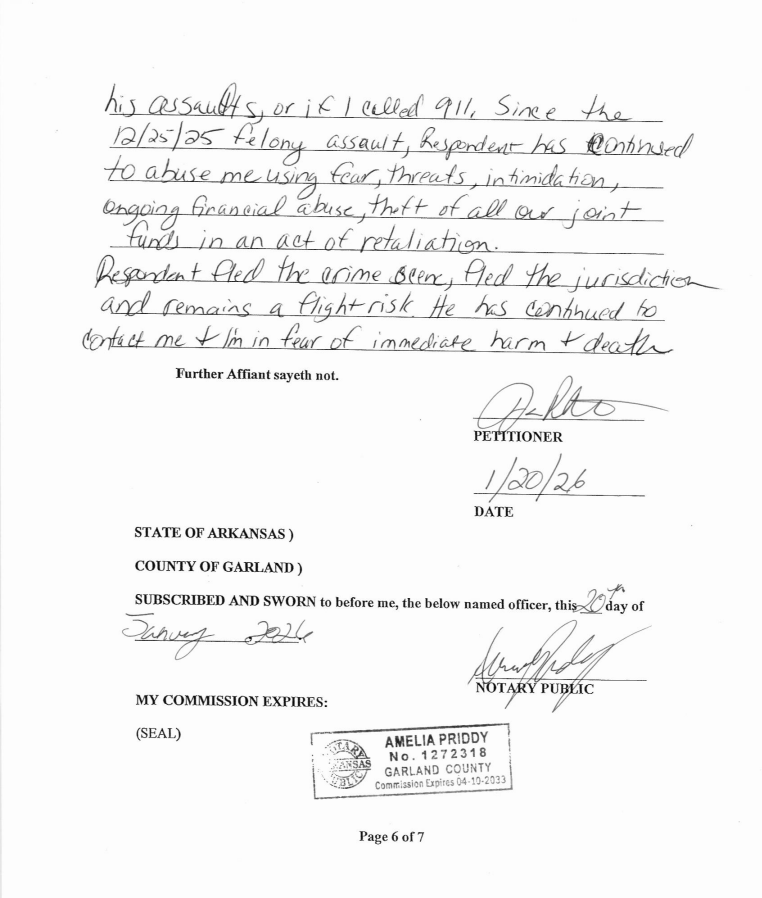 his assaults, or if I called 911. Since the
12/25/25 felony assault, Respondent has continued
to abuse me using fear, threats, intimidation,
ongoing financial abuse, theft of all our joint
funds in an act of retaliation.
Respondent fled the crime scene, fled the jurisdiction
and remains a flight risk He has continued to
contact me + I'm in fear of immediate harm + death
Further Affiant sayeth not.
PETITIONER
1/20/26
DATE
STATE OF ARKANSAS )
COUNTY OF GARLAND )
SUBSCRIBED AND SWORN to before me, the below named officer, this 20th day of
January 2026
NOTARY PUBLIC
MY COMMISSION EXPIRES:
(SEAL)
AMELIA PRIDDY
No. 1272318
GARLAND COUNTY
Commission Expires 04-10-2033
Page 6 of 7